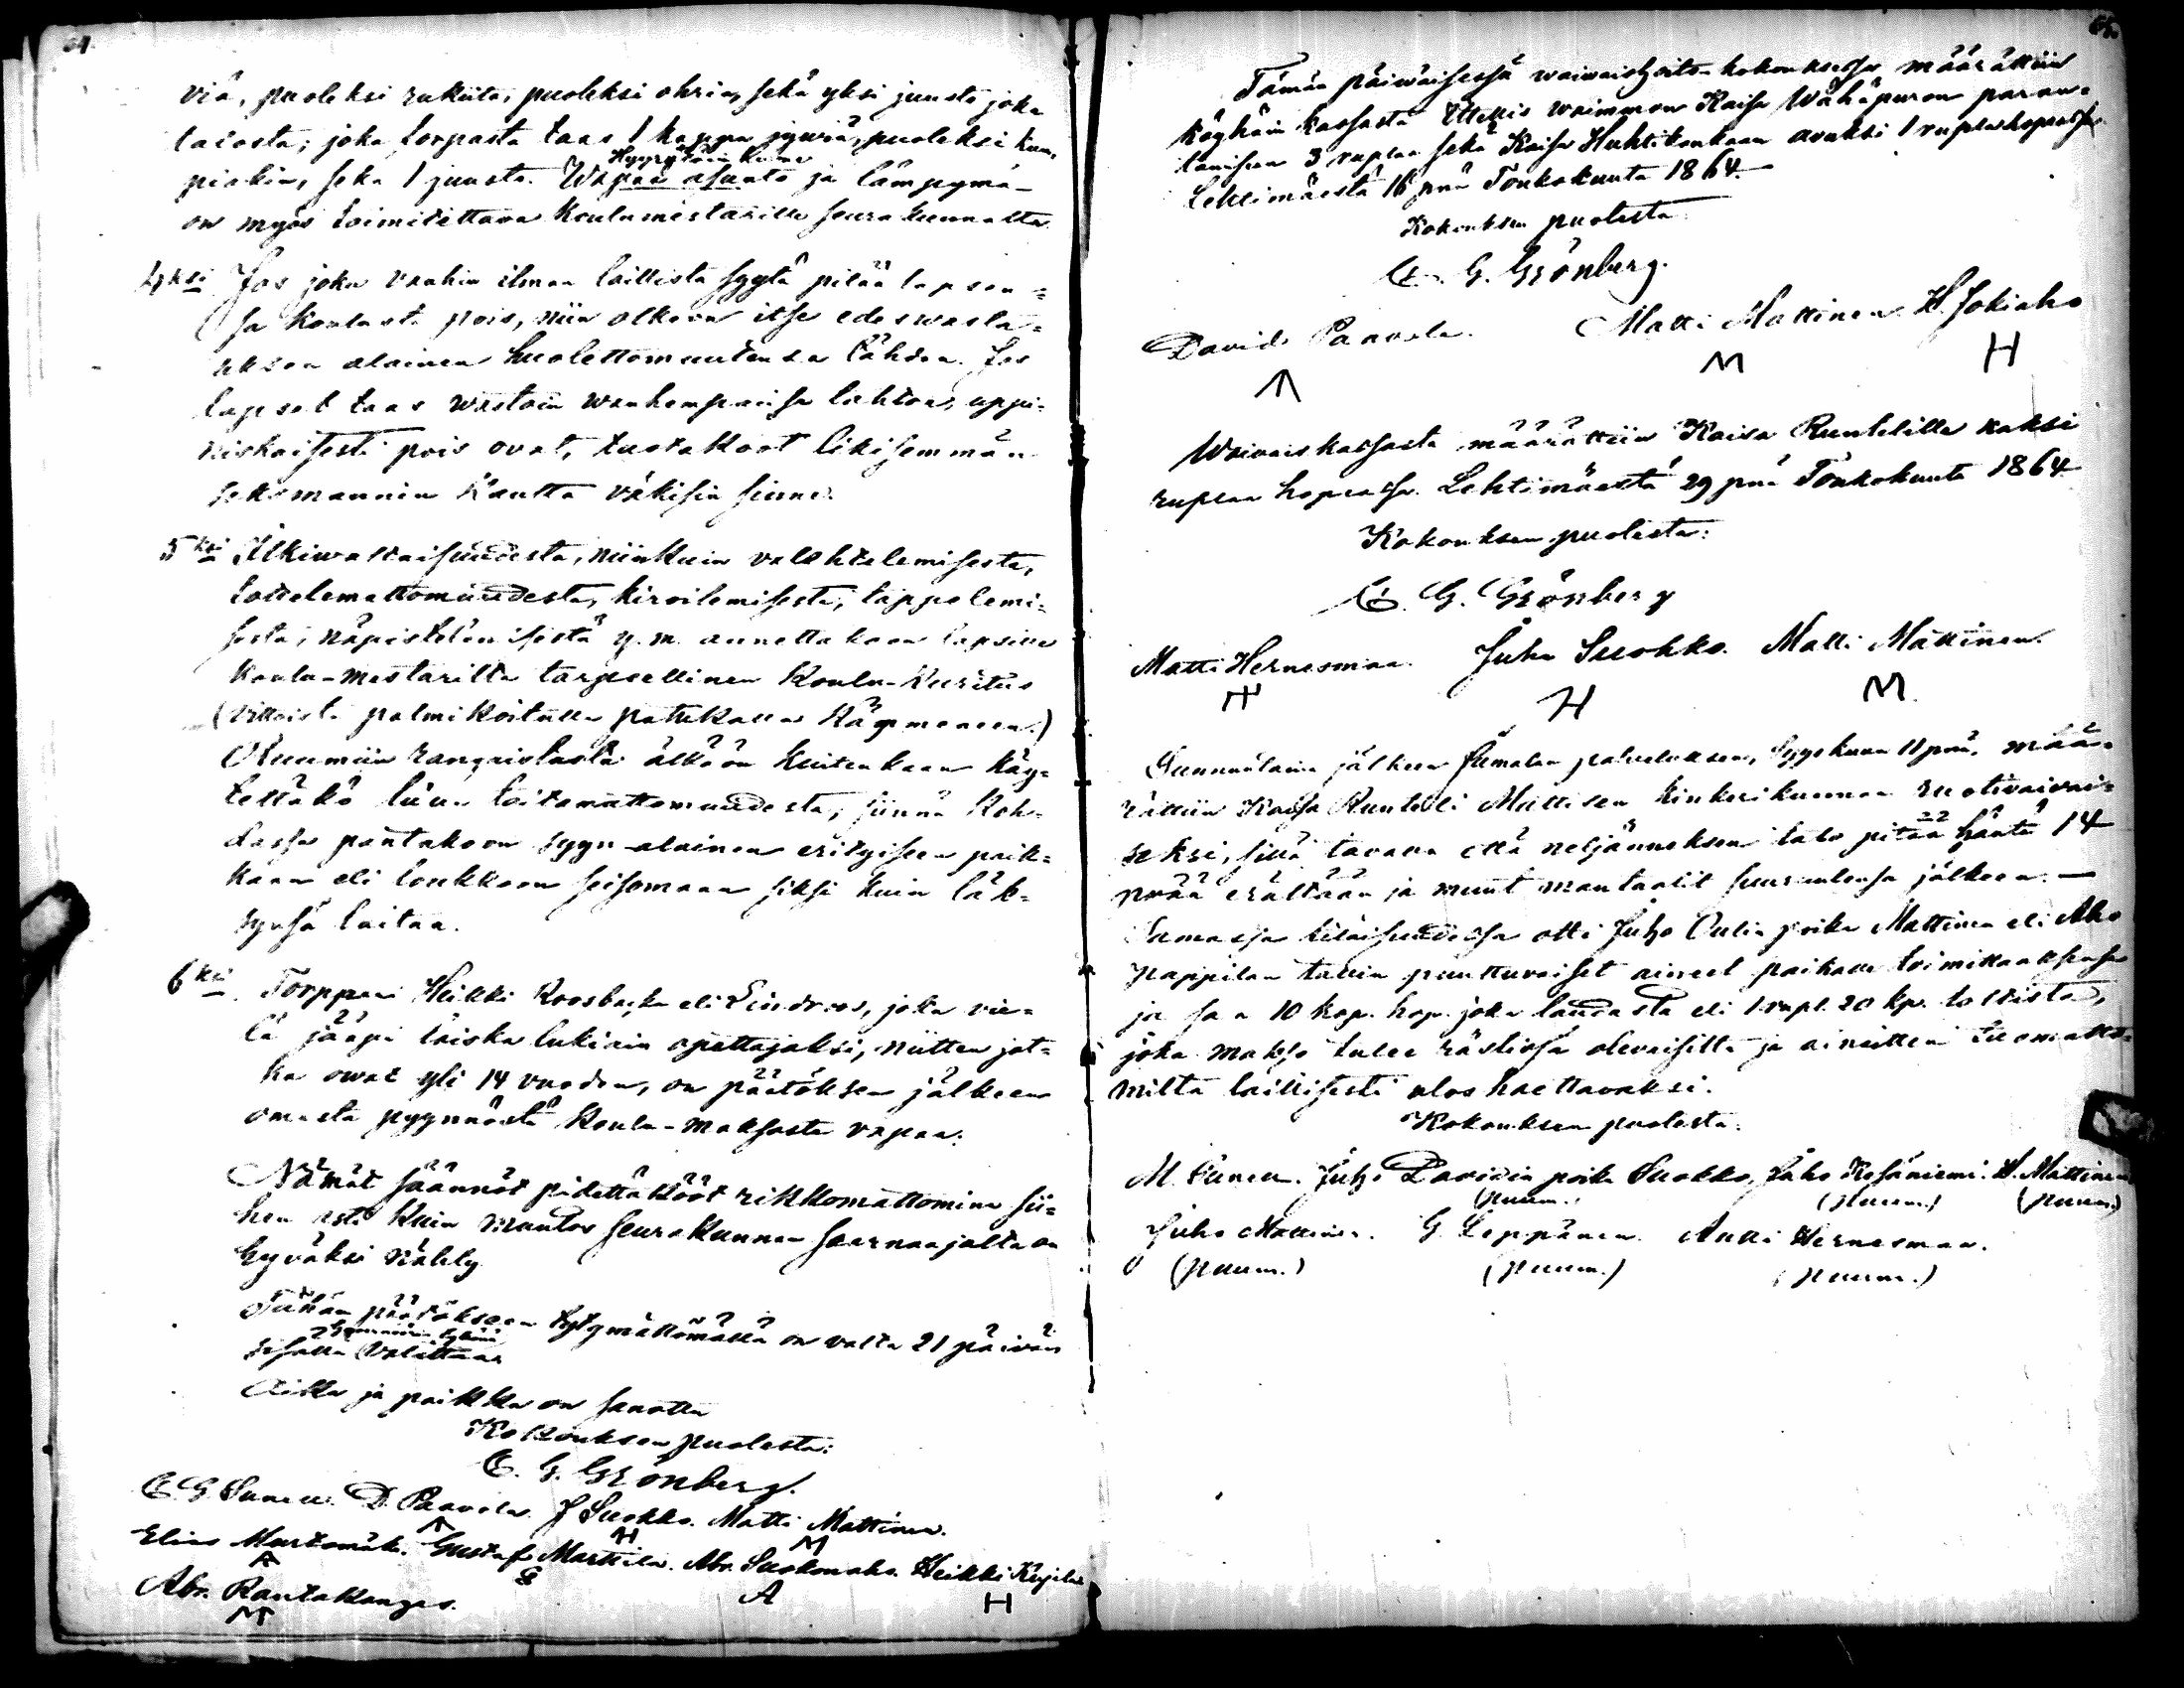 64.
viä, puoleksi rukiita, puoleksi ohria, sekä yksi juusto joka
talosta; joka torpasta taas 1 kappa jywiä, puoleksi kum-
Hyyrytöin
piakin, seka 1 juusto. Wapaa asunto ja lämpymä-
on myös toimitettava Koulumestarille seurakunnalta.
4ksi Jos joku vanhin ilman laillista syytä pitää lapsen=
sa koulusta pois, niin olkoon itse edeswasta=
uksen alainen huolettomuutensa tähden. Jos
lapset taas wastoin wanhempainsa tahtoa, uppi=
niskaisesti pois ovat, tuotakoot likisemmän
seksmannin kautta väkisin sinne.
5ksi Ilkiwaltaisuudesta, niinkuin valehtelemisesta,
tottelemattomuudesta, kiroilemisesta, tappelemi=
sesta, näpistelemisestä y.m. annettakoon lapsille
koulu-mestarilta tarpeellinen Koulu-Kuritus
palmikoitulla patukalla kämmeneen.)
Ruumiin rangaistusta älköön kuitenkaan käy=
tettäkö luvun taitamattomuudesta; siinä koh-
dassa pantakoon syyn-alainen erityiseen paik=
kaan eli loukkoon seisomaan siksi kuin läk=
synsä taitaa.
6ksi Torppari Heikki Roosbacka eli Lindroos, joka vie=
lä jääpi toiska lukiain opettajaksi, niitten jot=
ka owat yli 14 vuoden, on päätöksen jälkeen
omasta pyynnöstä Koulu-maksosta vapaa.
Nämät säännöt pidettäkööt rikkomattomina sii=
hen asti kuin muutos seurakunnan saarnaajalta on
hyväksi nähty
Tähän päätökseen tytymättömällä on valta 21 päivän
sisällä valittaa
Aika ja paikka on sanottu
Kokouksen puolesta:
E. G. Grönberg.
E. G. Sanen. D. Paavola. J Suokko. Matti Mattinen.
H M
Elias Murtomäki. Gustaf Markkila. Abr. Suokonaho. Heikki Kujala
A H
Abr. Rantakangas.
65.
Tämän päiwäisessä waiwaishoiton kokouksessa määrättiin
köyhäin kassasta Ittellis waimmon Kaisa Wähäpuron paran-
tamiseen 3 ruplaa sekä Kaisa Huhtikankaan avuksi 1 rupla hopeassa
Lehtimäestä 16 pnä Toukokuuta 1864.
Kokouksen puolesta:
E. G. Grönberg.
David Paavola. Matti Mattinen. H. Jokiaho
M H
Waivaiskassasta määrättiin Kaisa Runtelille kaksi
ruplaa hopeassa. Lehtimäestä 29 pnä Toukokuuta 1864
Kokouksen puolesta:
E. G. Grönberg
Matti Hernesmaa. Juha Suokko. Matti Mattinen.
H M.
Sunnuntaina jälkeen Jumalan palveluksen, Syyskuun 11 pnä, mää=
rättiin Kaisa Runteli Mattisen kinkerikunnan ruotivaivai=
seksi, sillä tavalla että neljänneksen talo pitää häntä 14
pvää erältään ja muut mantaalit suuruutensa jälkeen. —
Samassa tilaisuudessa otti Juho Oulin poika Mattinen eli Aho
Pappilan tallin puuttuvaiset aineet paikalle toimittaaksensa
ja saa 10 kop. hop. joka laudasta eli 1 rupl. 20 kp. toltista,
joka makso tulee rästissä olevaisilta ja aineitten tuomatto=
milta laillisesti ulos haettavaksi.
Kokouksen puolesta:
M. Sanen. Juho Davidin poika Suokko, Juho Kesäniemi. H. Mattinen
(puum.) (puum.) (puum.)
Juho Mattinen. G. Leppänen. Antti Hernesmaa.
(puum.) (puum.) (puum.)